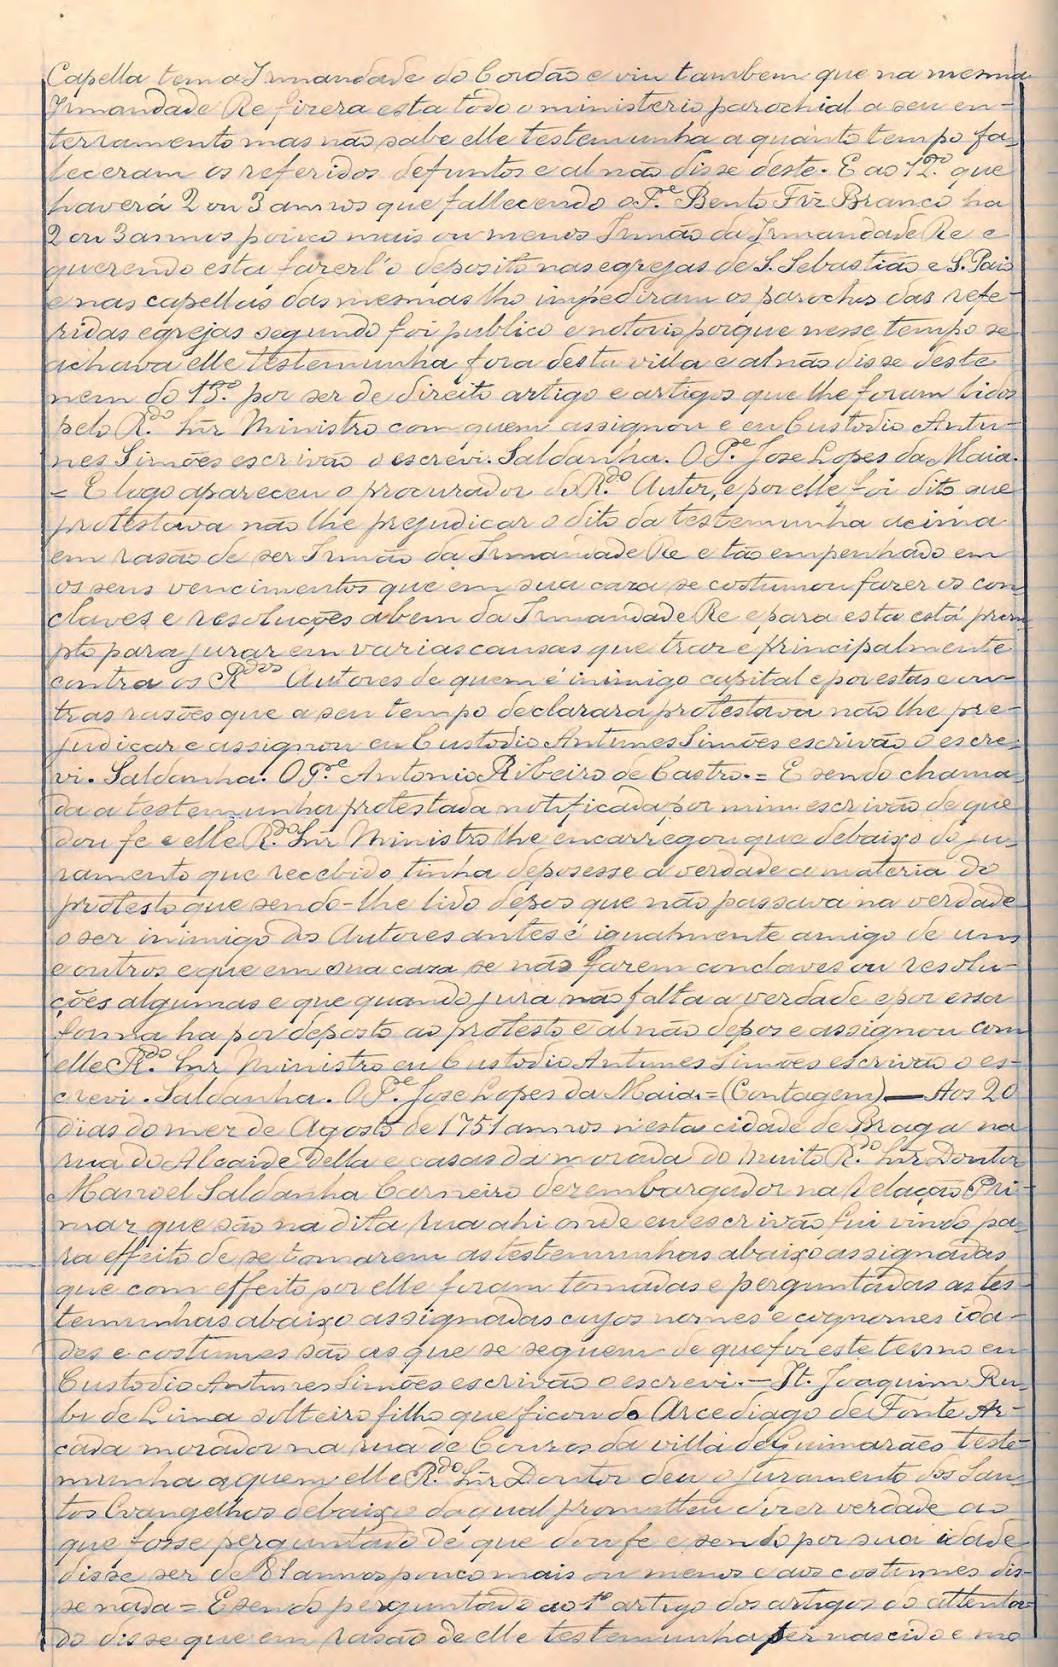 Capella tem a Irmandade do Cordão e viu tambem que na mesma
Irmandade Re fizera esta todo o ministerio parochial a seu en-
terramento mas não sabe elle testemunha a quanto tempo fa-
leceram os referidos defuntos e al não disse deste. E ao 12.º que
haverá 2 ou 3 annos que fallecendo o P.e Bento Frz Branco ha
2 ou 3 annos pouco mais ou menos Irmão da Irmandade Re e
querendo esta fazerl'o deposito nas egrejas de S. Sebastião e S. Paio
e nas capellas das mesmas lho impediram os parochos das refe-
ridas egrejas segundo foi publico e notorio porque nesse tempo se
achava elle testemunha fora desta villa e al não disse deste
nem do 13.º por ser de direito artigo e artigos que lhe foram lidos
pelo R.do Snr Ministro com quem assignou e eu Custodio Antu-
nes Simões escrivão o escrevi. Saldanha. O P.e Jose Lopes da Maia.
= E logo apareceu o procurador do R.do Autor, e por elle foi dito que
protestava não lhe prejudicar o dito da testemunha acima
em rasão de ser Irmão da Irmandade Re e tão empenhado em
os seus vencimentos que em sua caza se costumou fazer os con
claves e resoluções a bem da Irmandade Re e para esta está prom
pto para jurar em varias causas que traz e principalmente
contra os R.dos Autores de quem é inimigo capital e por estas e ou-
tras rasões que a seu tempo declarara protestava não lhe pre-
judicar e assignou eu Custodio Antunes Simões escrivão o escre-
vi. Saldanha. O P.e Antonio Ribeiro de Castro. = E sendo chama-
da a testemunha protestada notificada por mim escrivão de que
dou fe e elle R.do Snr Ministro lhe encarregou que debaixo do ju-
ramento que recebido tinha depozesse a verdade a materia do
protesto que sendo-lhe lido depos que não passava na verdade
o ser inimigo dos Autores antes é igualmente amigo de uns
e outros e que em sua caza se não fazem conclaves ou resolu-
ções algumas e que quando jura não falta a verdade e por essa
forma ha por deposto ao protesto e al não depos e assignou com
elle R.do Snr Ministro eu Custodio Antunes Simões escrivão o es-
crevi. Saldanha. O P.e Jose Lopes da Maia. = (Contagem) — Aos 20
dias do mez de Agosto de 1751 annos n'esta cidade de Braga na
rua do Alcaide della e casas da morada do muito R.do Snr Doutor
Manoel Saldanha Carneiro dezembargador na Relação Pri-
maz que são na dita rua ahi onde eu escrivão fui vindo pa-
ra effeito de se tomarem as testemunhas abaixo assignadas
que com effeito por elle foram tomadas e perguntadas as tes-
temunhas abaixo assignadas cujos nomes e cognomes ida-
des e costumes são as que se seguem de que foi este termo eu
Custodio Antunes Simões escrivão o escrevi. — It. Joaquim Ru-
bi de Lima solteiro filho que ficou do Arcediago de Fonte Ar-
cada morador na rua de Couros da villa de Guimarães teste-
munha a quem elle R.do Snr Doutor deu o juramento dos San-
tos Evangelhos debaixo do qual prometteu dizer verdade ao
que fosse perguntado de que dou fe e sendo por sua idade
disse ser de 81 annos pouco mais ou menos e aos costumes dis-
se nada = E sendo perguntado ao 1º artigo dos artigos do attenta-
do disse que em rasão de elle testemunha ser nascido e mo